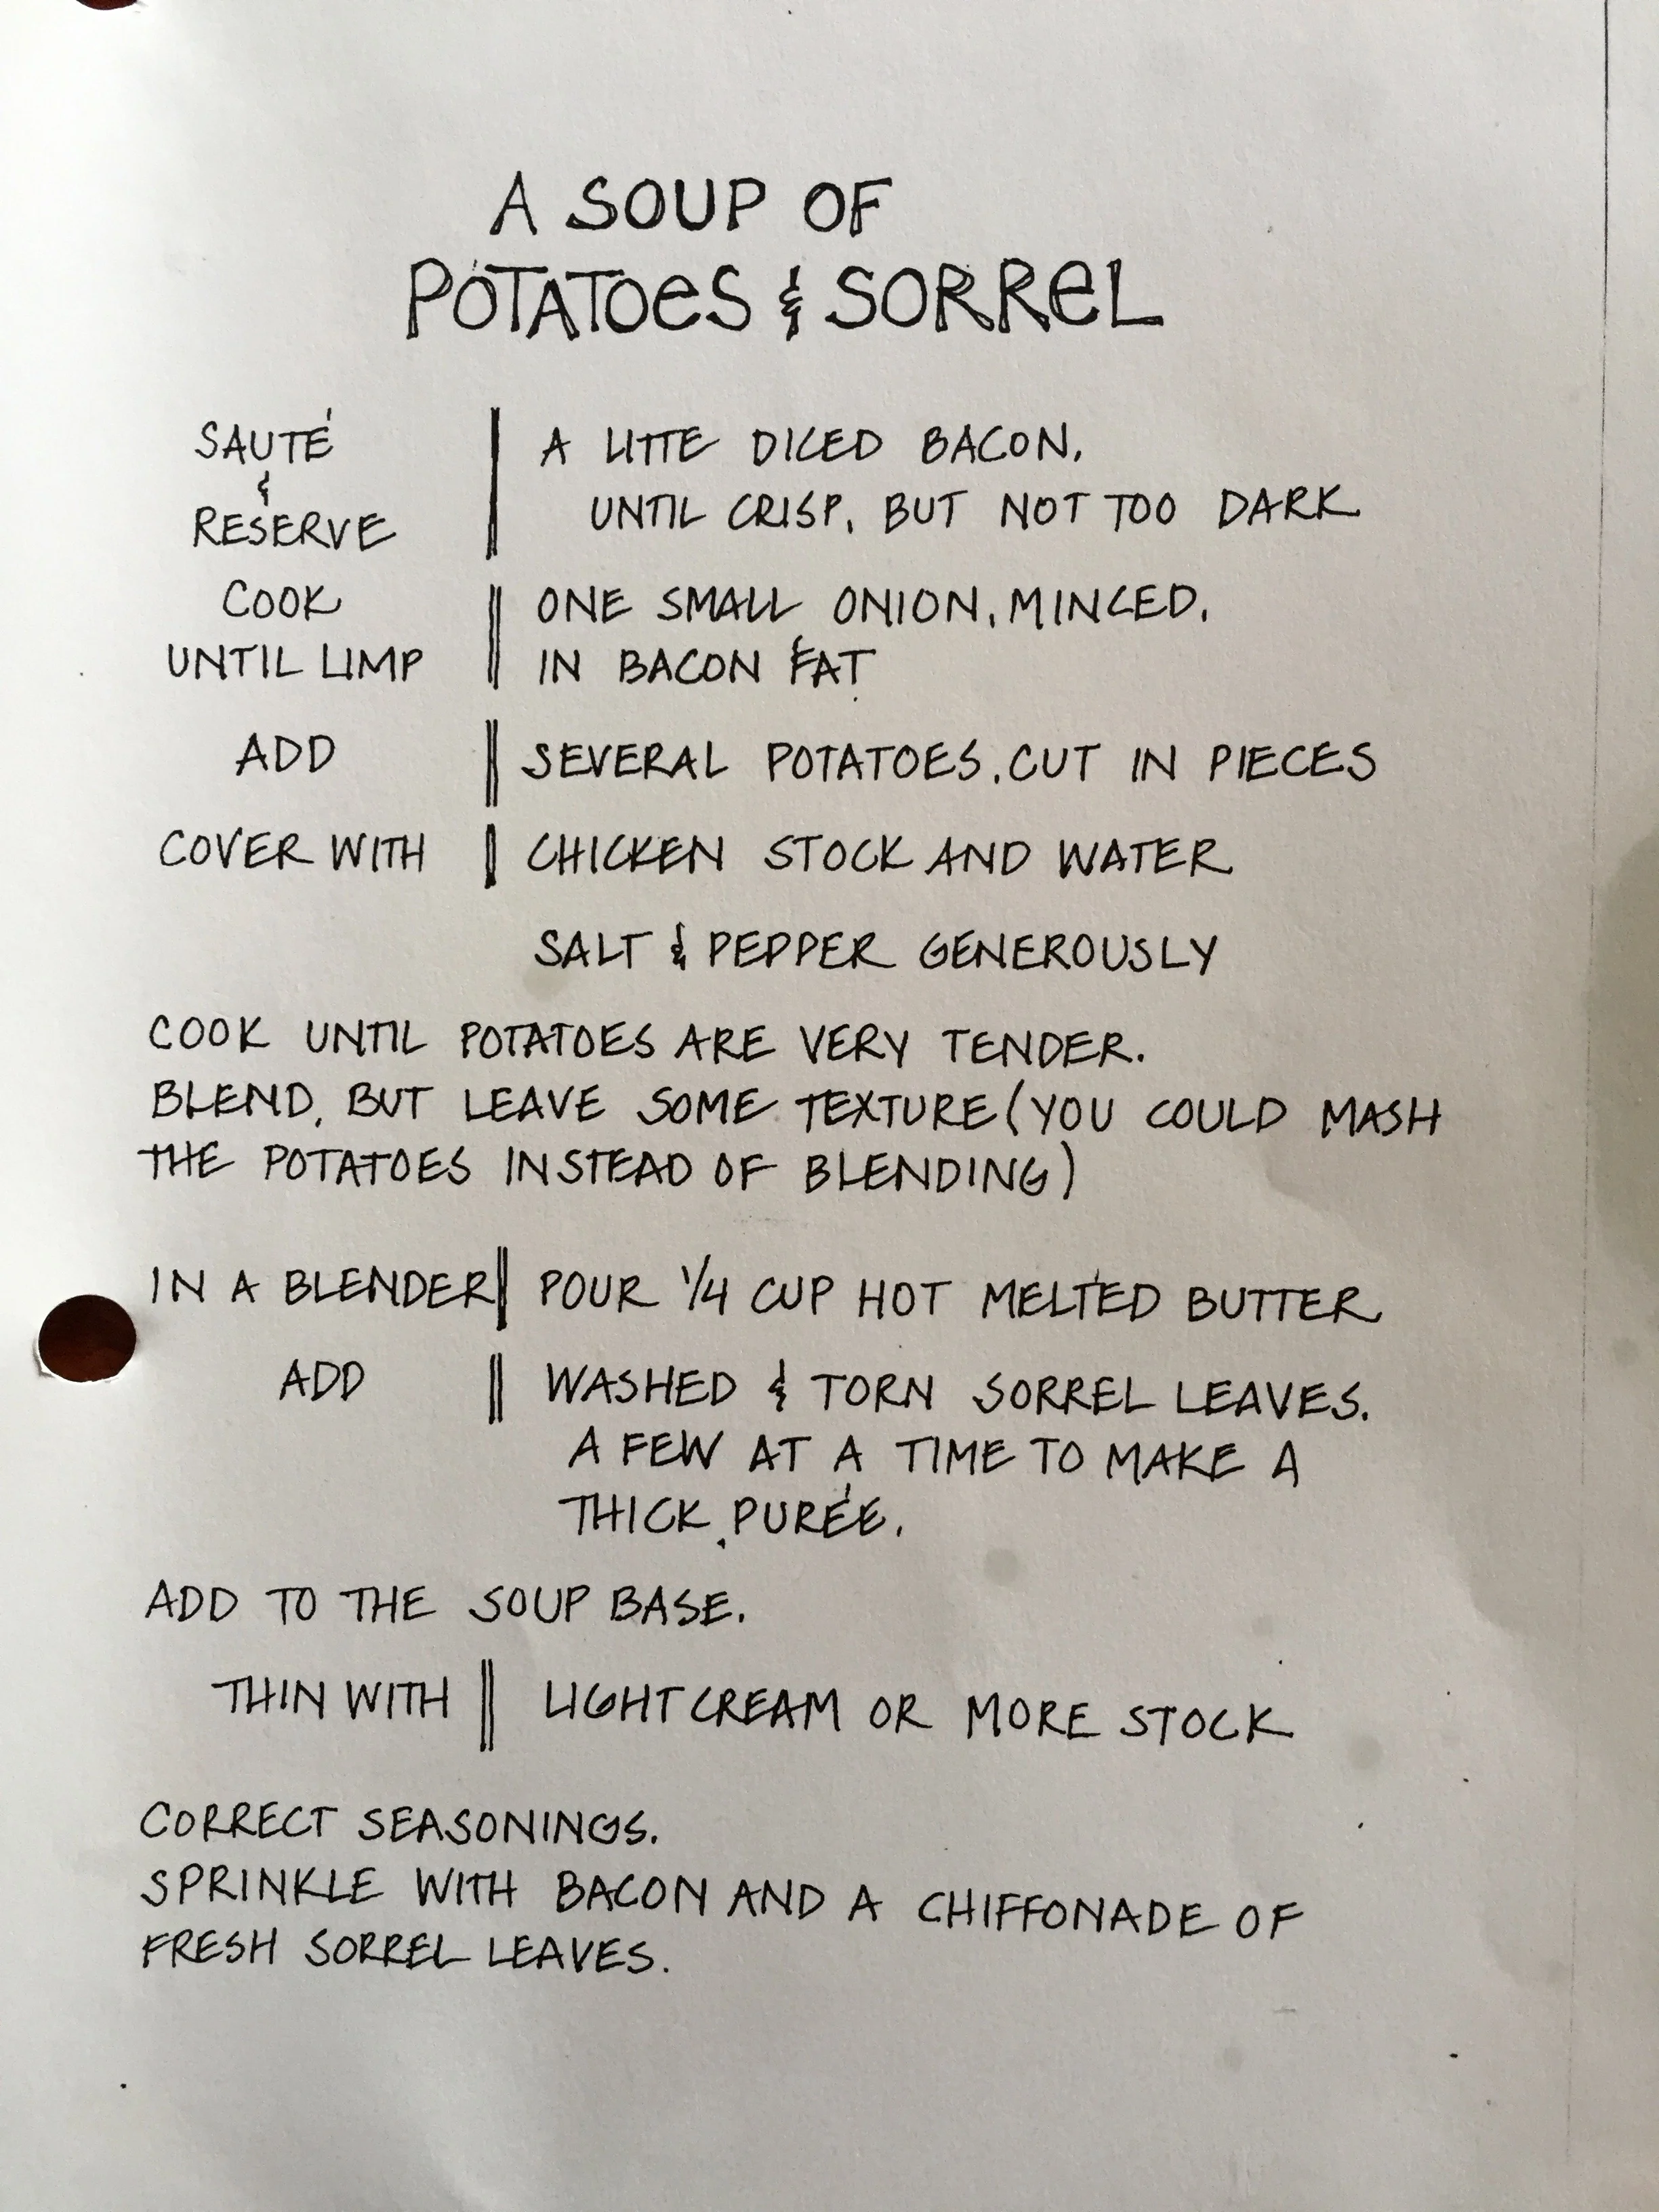 A SOUP OF
POTATOES & SORREL
SAUTÉ
&
RESERVE
A LITTE DICED BACON,
UNTIL CRISP, BUT NOT TOO DARK
COOK
UNTIL LIMP
ONE SMALL ONION, MINCED,
IN BACON FAT
ADD
SEVERAL POTATOES, CUT IN PIECES
COVER WITH
CHICKEN STOCK AND WATER
SALT & PEPPER GENEROUSLY
COOK UNTIL POTATOES ARE VERY TENDER.
BLEND, BUT LEAVE SOME TEXTURE (YOU COULD MASH
THE POTATOES INSTEAD OF BLENDING)
IN A BLENDER
POUR 1/4 CUP HOT MELTED BUTTER
ADD
WASHED & TORN SORREL LEAVES.
A FEW AT A TIME TO MAKE A
THICK PURÉE.
ADD TO THE SOUP BASE.
THIN WITH
LIGHT CREAM OR MORE STOCK
CORRECT SEASONINGS.
SPRINKLE WITH BACON AND A CHIFFONADE OF
FRESH SORREL LEAVES.